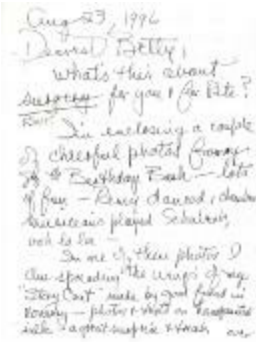 Aug 23, 1996
Dearest Betty,
What's this about
surgery for you & for Pete?
I'm enclosing a couple
of cheerful photos from
my Birthday Bash — lots
of fun — danced, chamber
musicians played Schubert,
ooh la la —
In one of these photos I
am spreading the wings of my
"Story Coat" made by good friend in
— photos & on
silk — a great surprise &
over